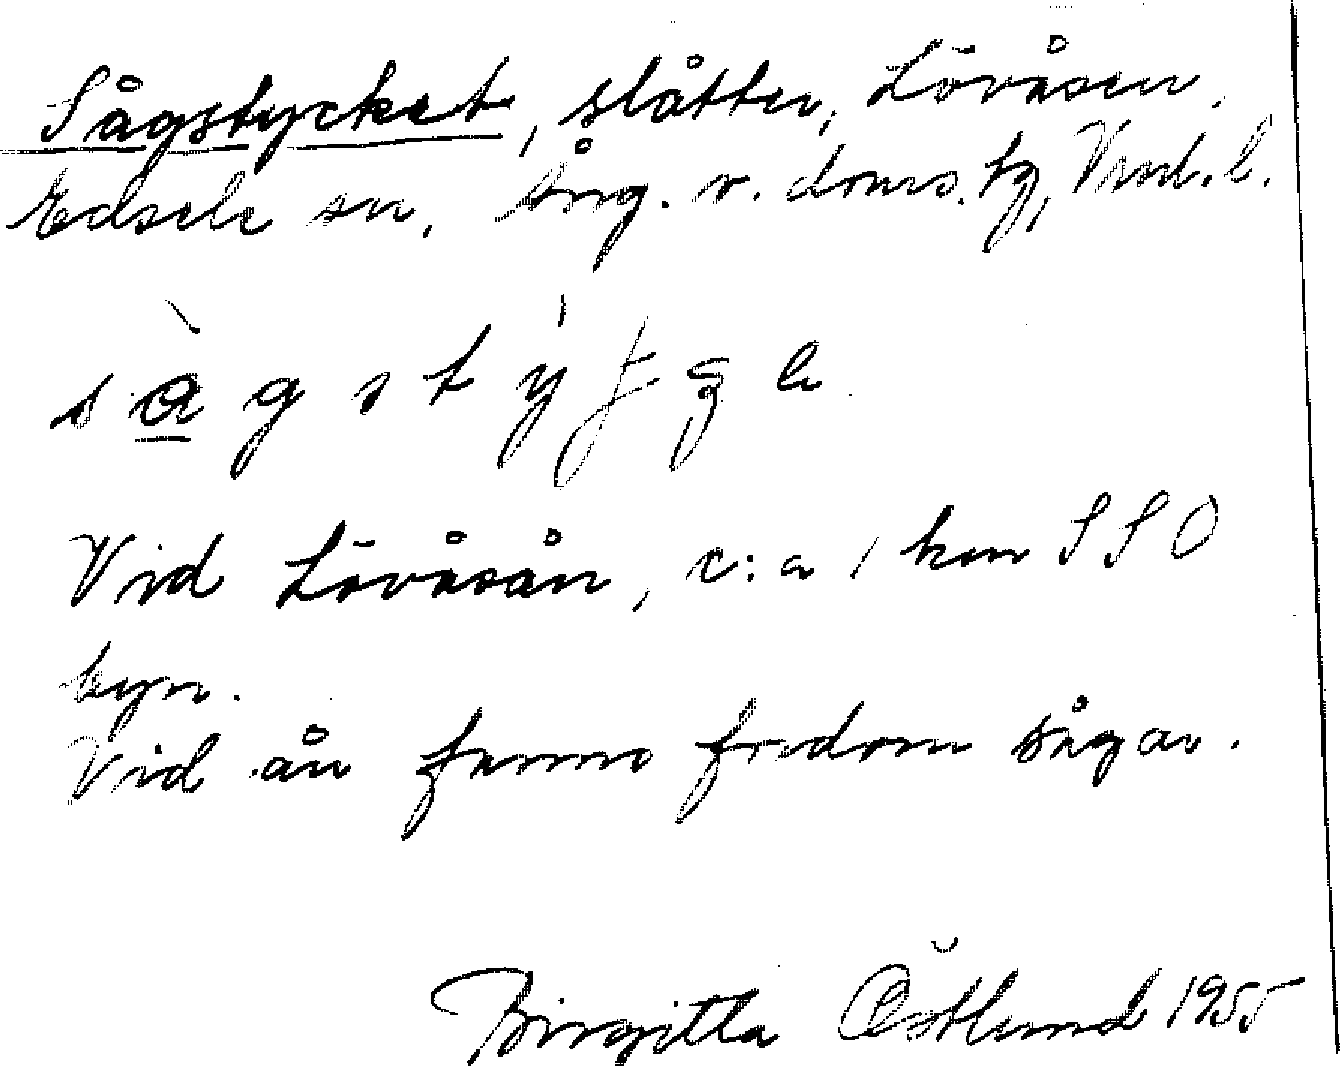 Sågstycket, slåtter, Lövåsen,
Edsele sn, Ång. v. doms. tg, Vnd. l.
Vid Lövåsån, c:a 1 km SSO
byn.
Vid ån funno fordom sågar.
Birgitta Östlund 1955